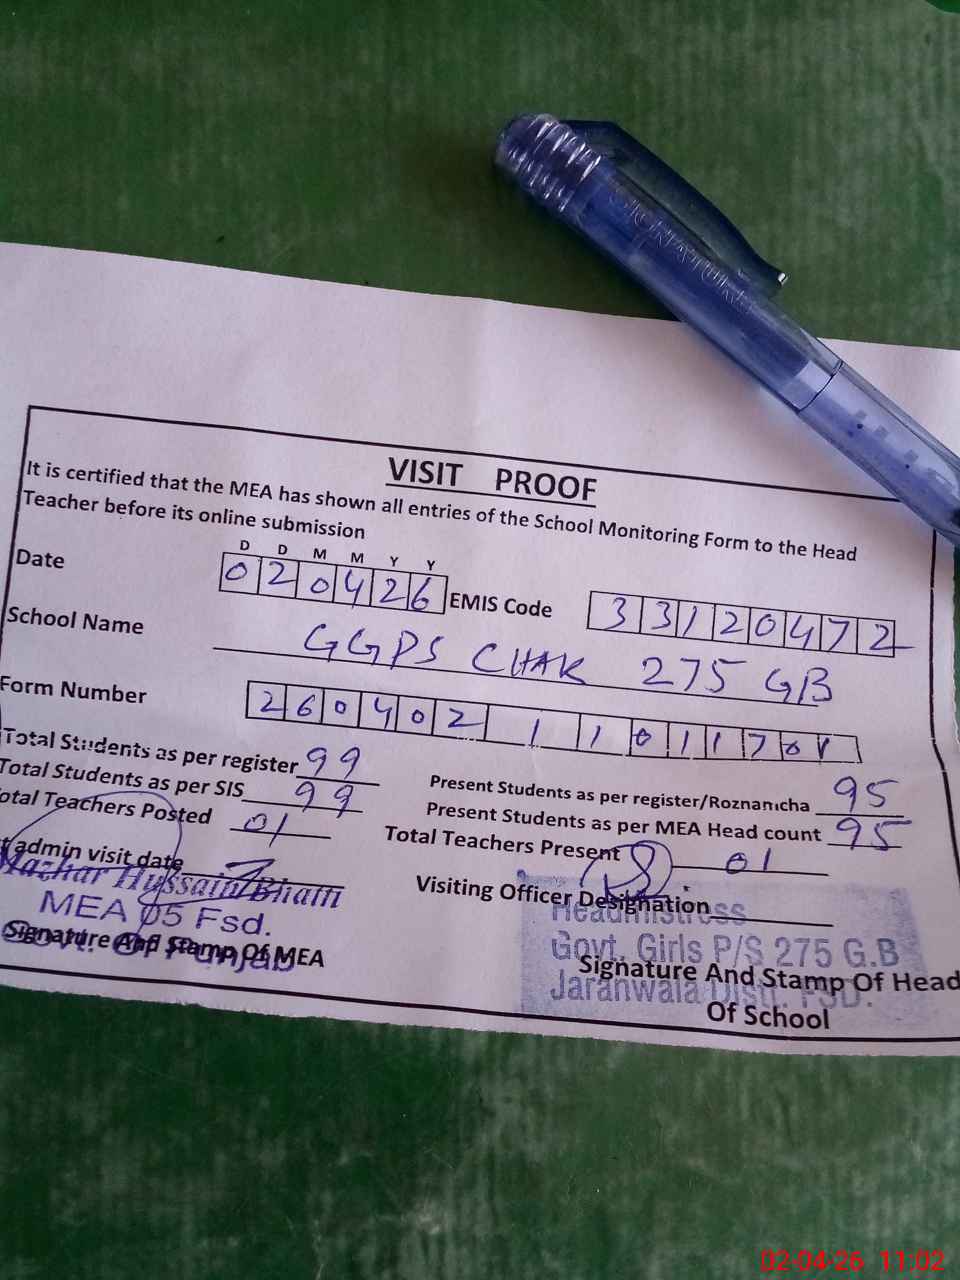 SIGNATURE
VISIT PROOF
It is certified that the MEA has shown all entries of the School Monitoring Form to the Head
Teacher before its online submission
D D M M Y Y
Date 020426 EMIS Code 33120472
School Name GGPS CHAK 275 GB
Form Number 260402 1 1 011701
Total Students as per register 99 Present Students as per register/Roznamcha 95
Total Students as per SIS 99 Present Students as per MEA Head count 95
otal Teachers Posted 01 Total Teachers Present 01
t admin visit date Visiting Officer Designation
Mazhar Hussain Bhatti
MEA 05 Fsd.
Govt. Of Punjab
Signature And Stamp Of MEA
Headmistress
Govt. Girls P/S 275 G.B
Jaranwala Distt. FSD.
Signature And Stamp Of Head
Of School
02-04-26 11:02